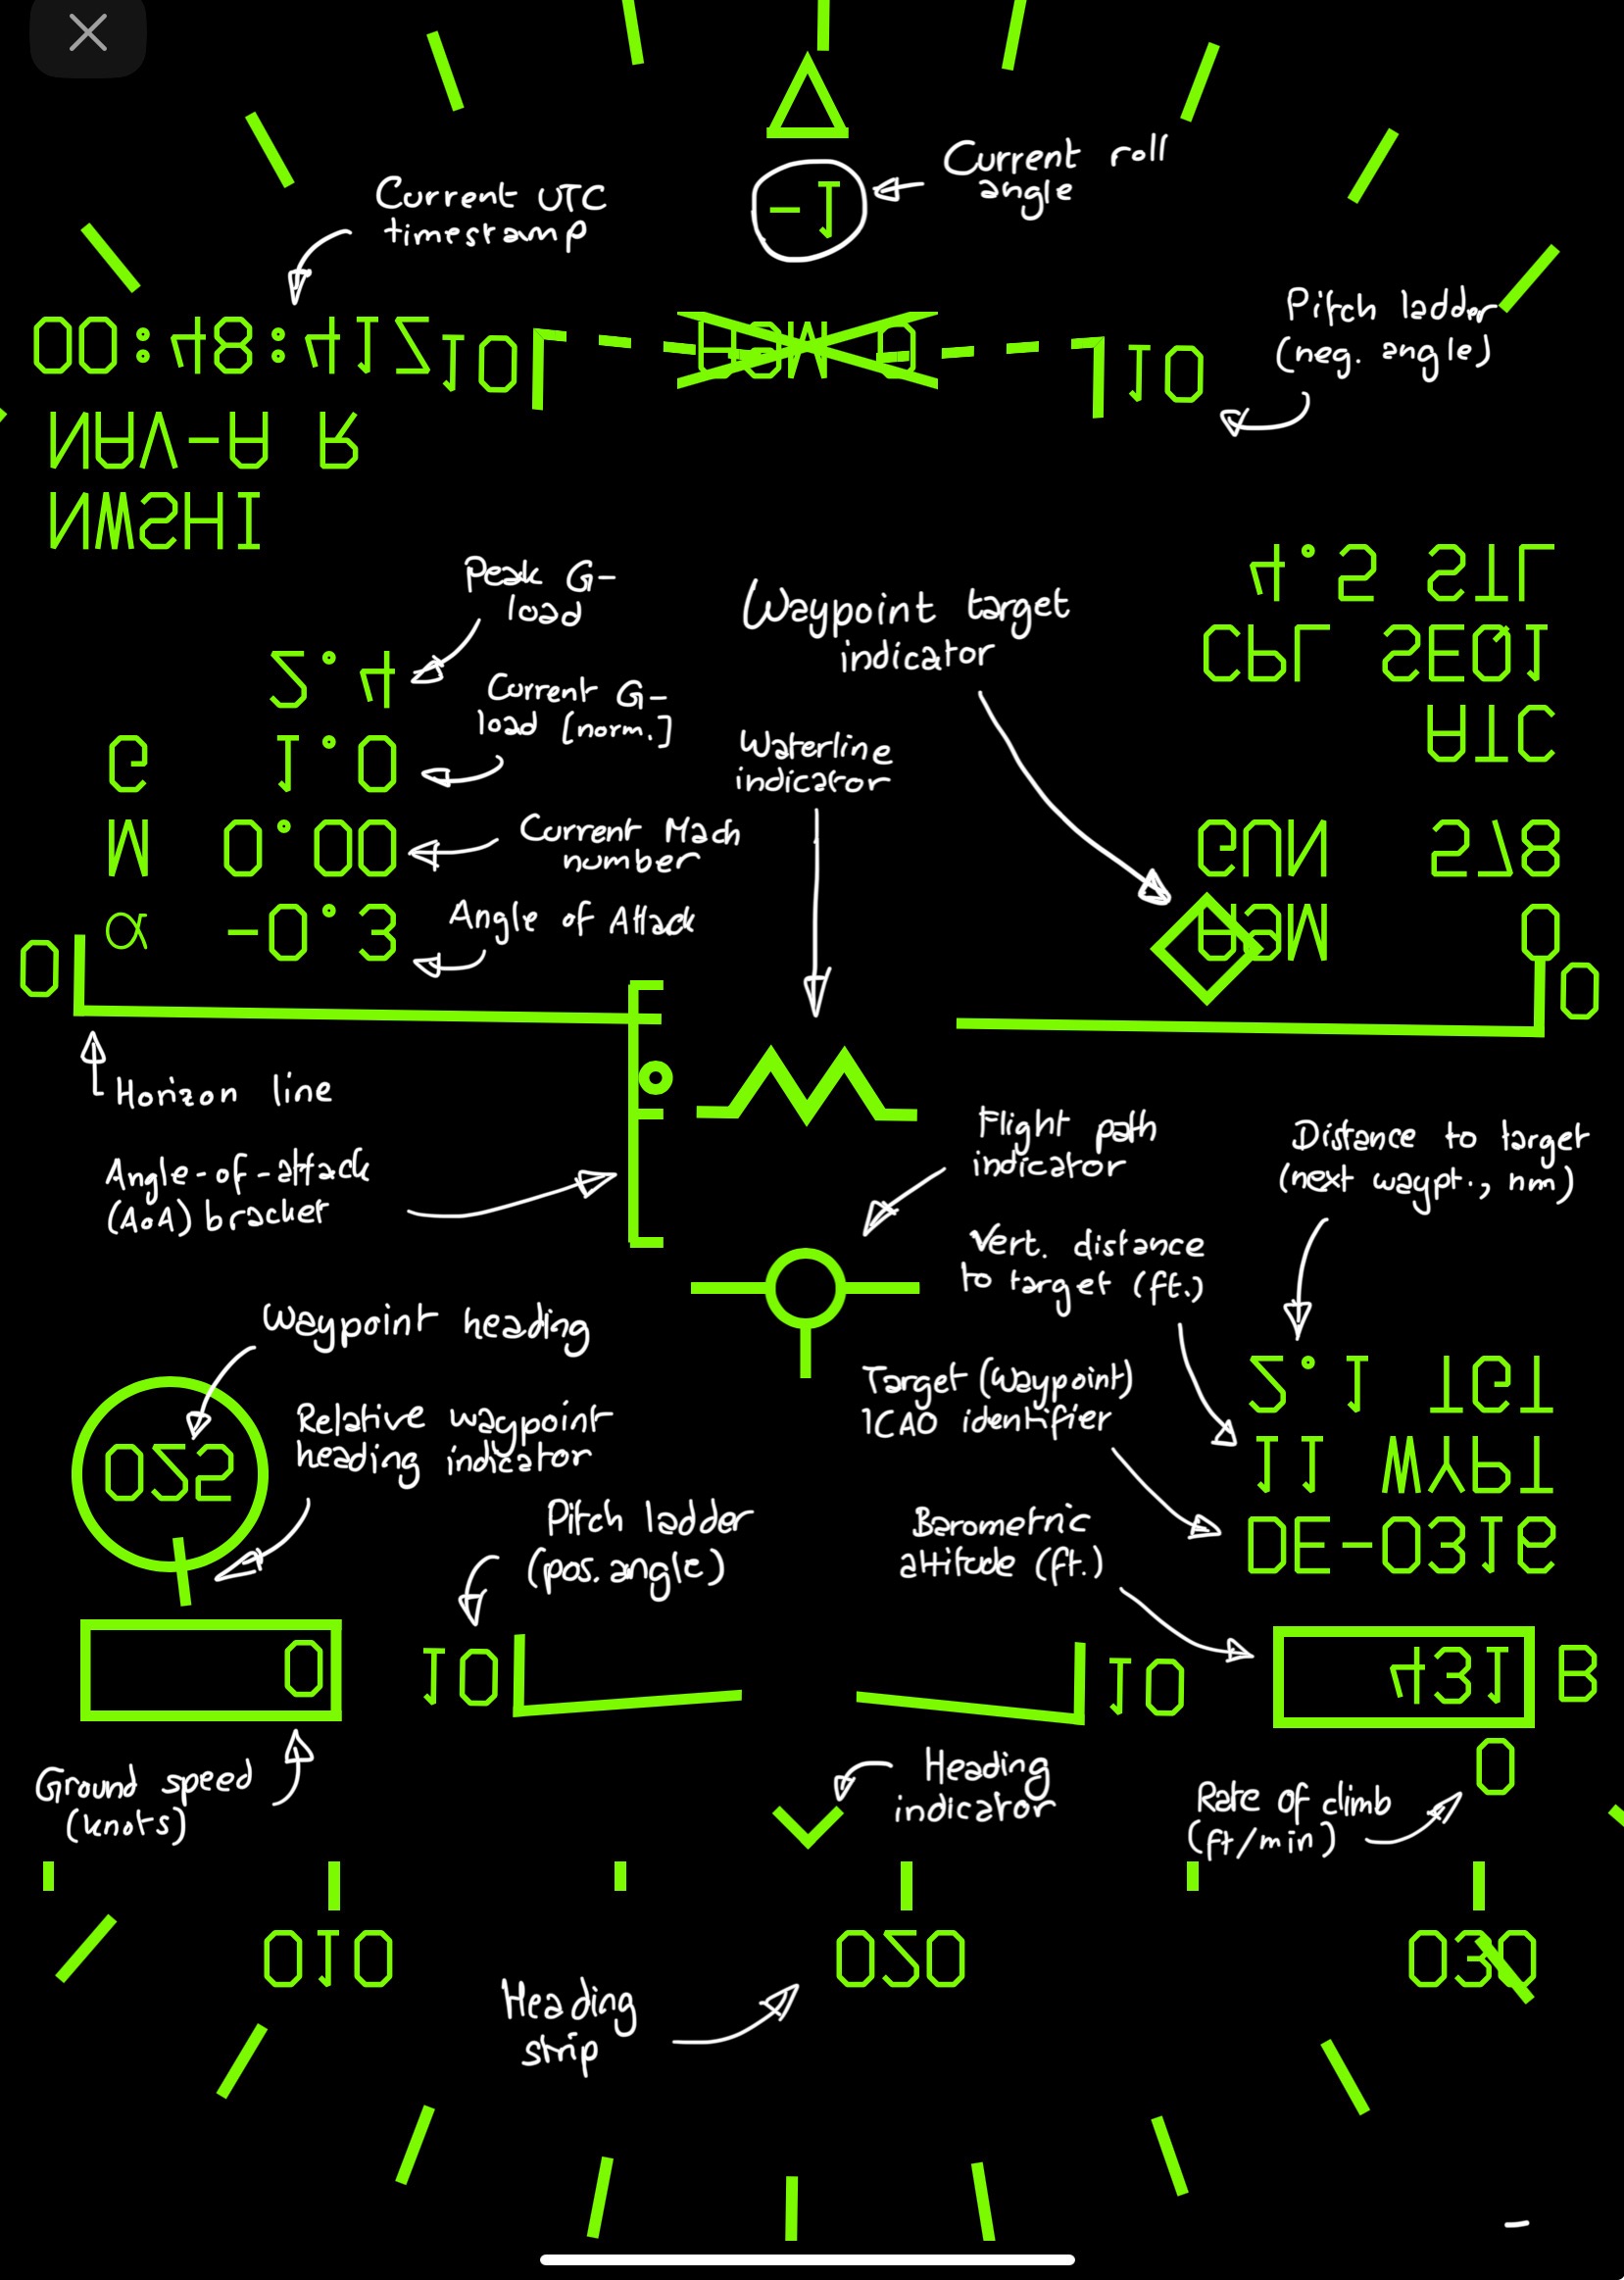 -1
Current roll
angle
Current UTC
timestamp
00:48:41Z
10
10
Pitch ladder
(neg. angle)
NAV-A R
NMSHI
4.5 STL
CPL SEQ1
ATC
Peak G-
load
2.4
Current G-
load [norm.]
G 1.0
Current Mach
number
M 0.00
Angle of Attack
α -0.3
Waypoint target
indicator
Waterline
indicator
GUN 578
AGM 0
0
0
Horizon line
Angle-of-attack
(AoA) bracket
Flight path
indicator
Distance to target
(next waypt., nm)
Vert. distance
to target (ft.)
Waypoint heading
025
Relative waypoint
heading indicator
Target (Waypoint)
ICAO identifier
2.1 TGT
11 WYPT
DE-0316
Pitch ladder
(pos. angle)
Barometric
altitude (ft.)
0
10
10
431 B
0
Ground speed
(knots)
Heading
indicator
Rate of climb
(ft/min)
010
020
030
Heading
strip